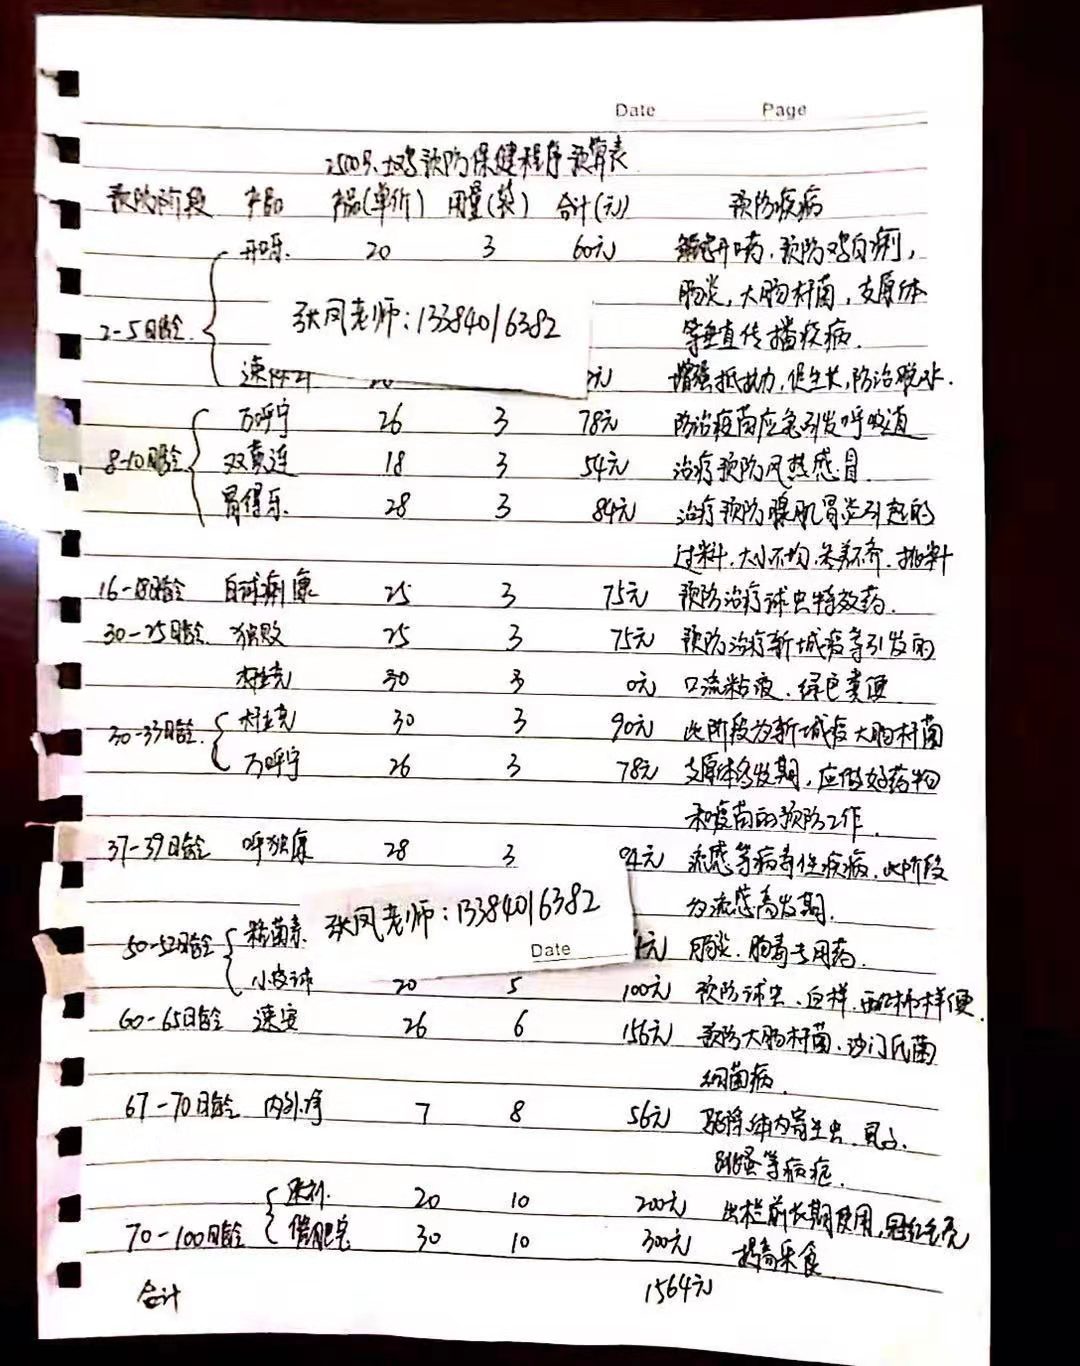 Date Page
2500只土鸡预防保健程序预算表
预防阶段 产品 产品(单价) 用量(袋) 合计(元) 预防疾病
开口乐 20 3 60元 解毒开口药,预防鸡白痢,
肠炎,大肠杆菌,支原体
张凤老师:13384016382
2-5日龄 等垂直传播疾病.
速 元 增强抵抗力,促生长,防治脱水.
万呼宁 26 3 78元 防治疫苗应急引发呼吸道
8-10日龄 双黄连 18 3 54元 治疗预防风热感冒.
胃得乐 28 3 84元 治疗预防腺肌胃炎引起的
过料.大小不均.采养不齐.挑料
16-18日龄 白球痢康 25 3 75元 预防治疗球虫特效药.
30-25日龄 独败 25 3 75元 预防治疗新城疫等引发的
杆挂克 30 3 0元 口流粘液.绿色粪便
30-33日龄 杆挂克 30 3 90元 此阶段为新城疫大肠杆菌
万呼宁 26 3 78元 支原体多发期,应做好药物
和疫苗的预防工作.
37-39日龄 呼独康 28 3 94元 流感等病毒性疾病.此阶段
为流感高发期.
张凤老师:13384016382
50-52日龄 粘菌素 元 肠炎.肠毒专用药.
Date
小皮球 20 5 100元 预防球虫.白样.西红柿样便.
60-65日龄 速安 26 6 156元 预防大肠杆菌.沙门氏菌
细菌病.
67-70日龄 内外净 7 8 56元 驱除体内寄生虫.虱子.
跳蚤等病疤.
20 10 200元 出栏前长期使用,冠红毛亮
70-100日龄 催肥宝 30 10 300元 提高采食
合计 1564元